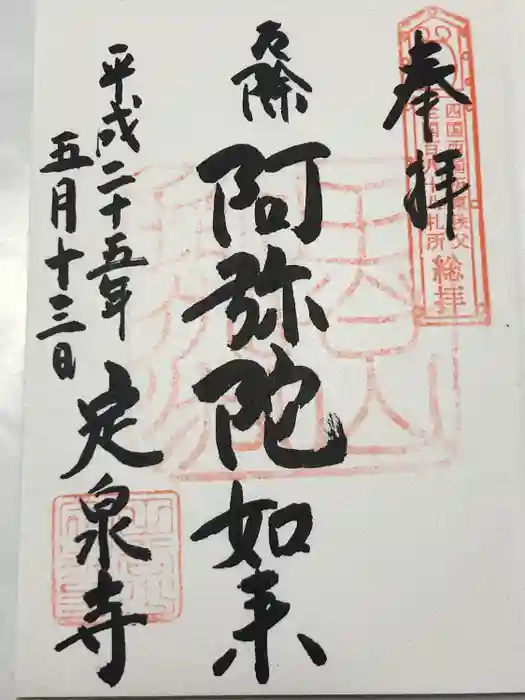 奉拝
四国西国坂東秩父
全国百八十八札所
総拝
厄除
阿弥陀如来
平成二十五年
五月十三日
定泉寺